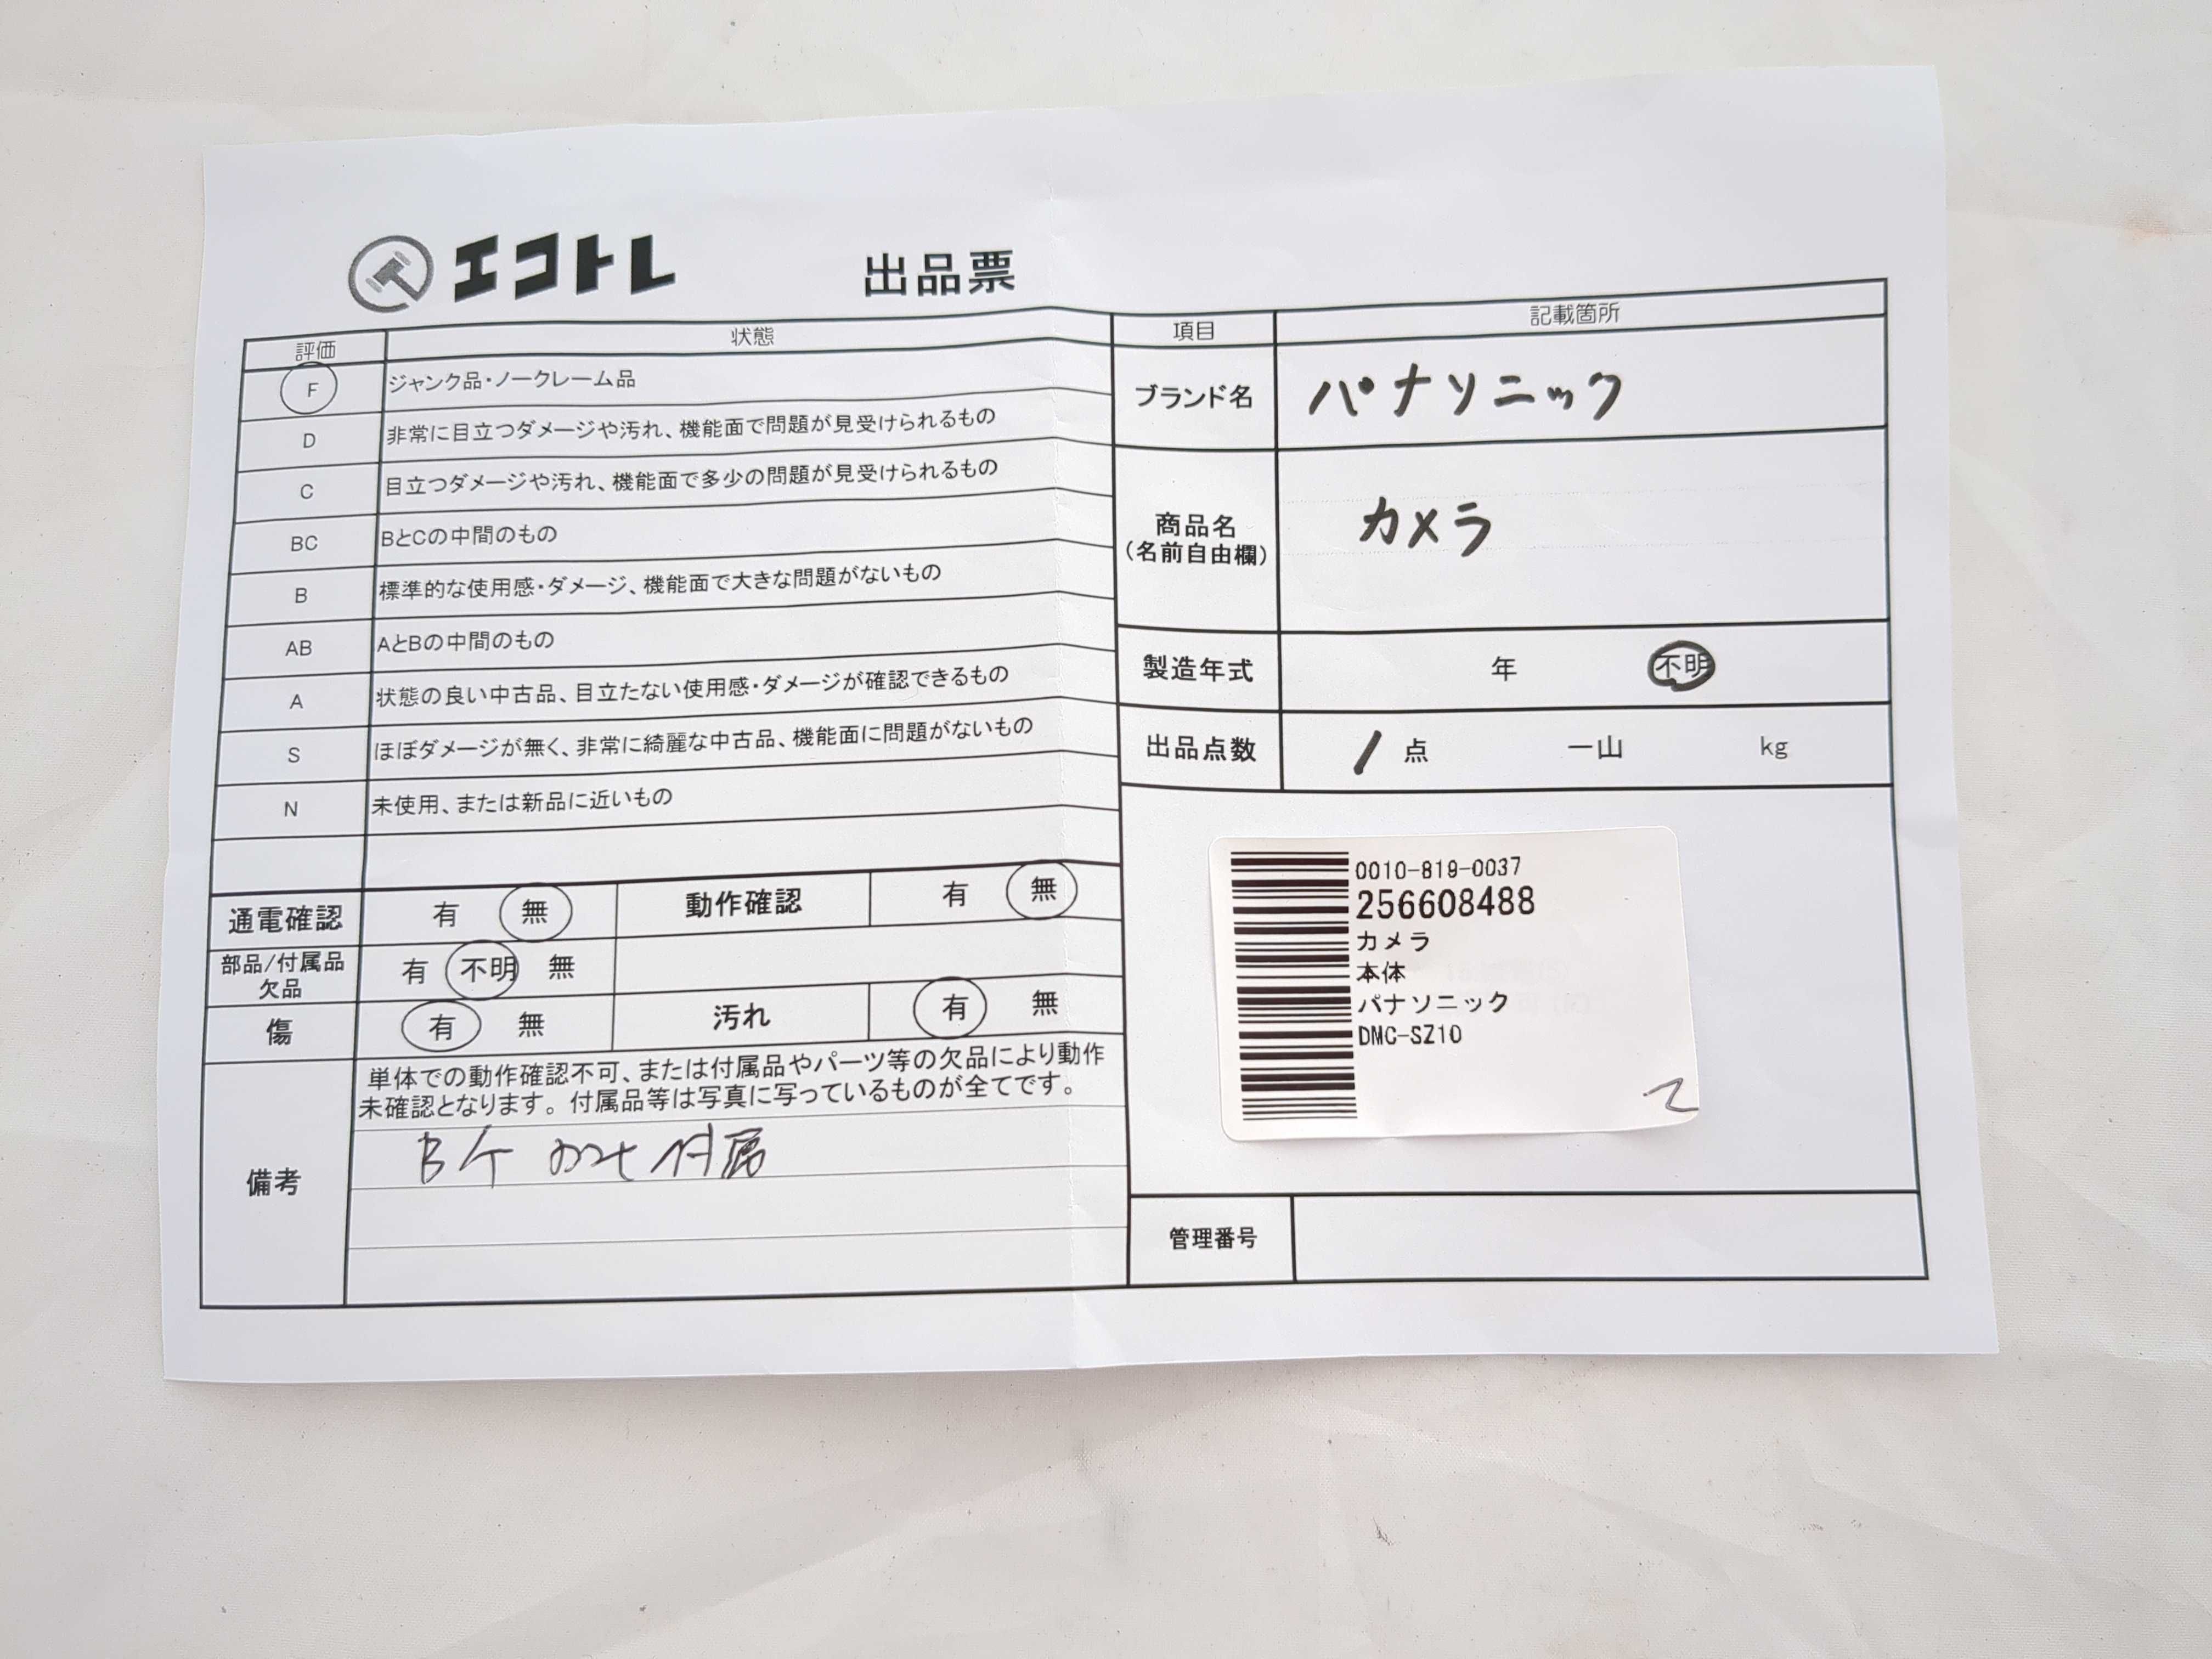 エコトレ 出品票
評価 状態
F ジャンク品・ノークレーム品
D 非常に目立つダメージや汚れ、機能面で問題が見受けられるもの
C 目立つダメージや汚れ、機能面で多少の問題が見受けられるもの
BC BとCの中間のもの
B 標準的な使用感・ダメージ、機能面で大きな問題がないもの
AB AとBの中間のもの
A 状態の良い中古品、目立たない使用感・ダメージが確認できるもの
S ほぼダメージが無く、非常に綺麗な中古品、機能面に問題がないもの
N 未使用、または新品に近いもの
通電確認 有 無 動作確認 有 無
部品/付属品 欠品 有 不明 無
傷 有 無 汚れ 有 無
備考
単体での動作確認不可、または付属品やパーツ等の欠品により動作
未確認となります。付属品等は写真に写っているものが全てです。
付属
項目 記載箇所
ブランド名 パナソニック
商品名 カメラ
(名前自由欄)
製造年式 年 不明
出品点数 1 点 一山 kg
0010-819-0037
256608488
カメラ
本体
パナソニック
DMC-SZ10
管理番号